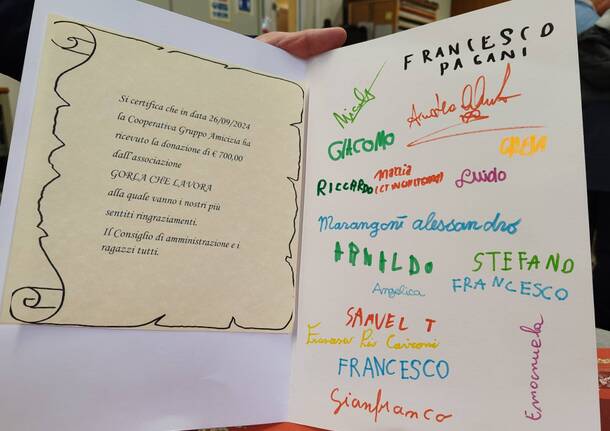 Si certifica che in data 26/09/2024
la Cooperativa Gruppo Amicizia ha
ricevuto la donazione di € 700,00
dall'associazione
GORLA CHE LAVORA
alla quale vanno i nostri più
sentiti ringraziamenti.
Il Consiglio di amministrazione e i
ragazzi tutti.
FRANCESCO
PAGANI
Nicolò
GIACOMO
RICCARDO
Mattia
Guido
Marangoni alessandro
ARNALDO
STEFANO
Angelica
FRANCESCO
SAMUEL T
FRANCESCO
Emanuela
Gianfranco